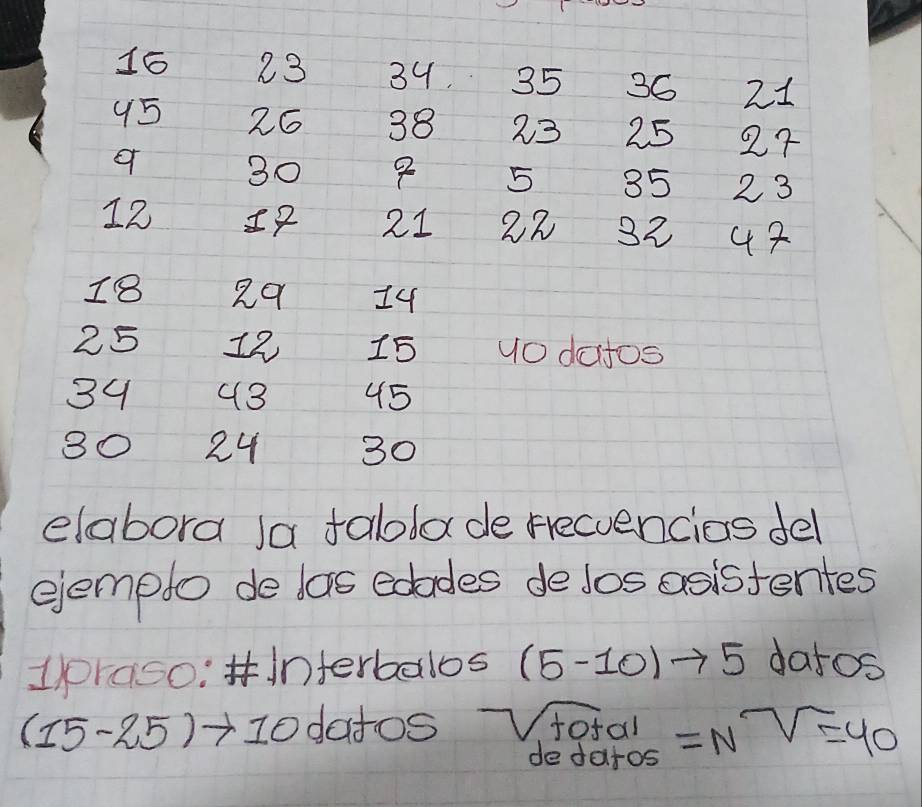 16 23 34 35 36 21
45 26 38 23 25 27
9 30 7 5 35 23
12 17 21 22 32 47
18 29 14
25 12 15 40 datos
34 43 45
30 24 30
elabora la tabla de frecuencias del
ejemplo de las edades de los asistentes
1)praso: # Interbalos (5-10) → 5 datos
(15-25) → 10 datos √total de datos = N √=40